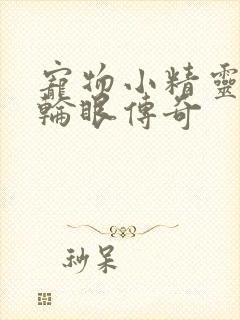 寵物小精靈
輪眼傳奇
秒呆